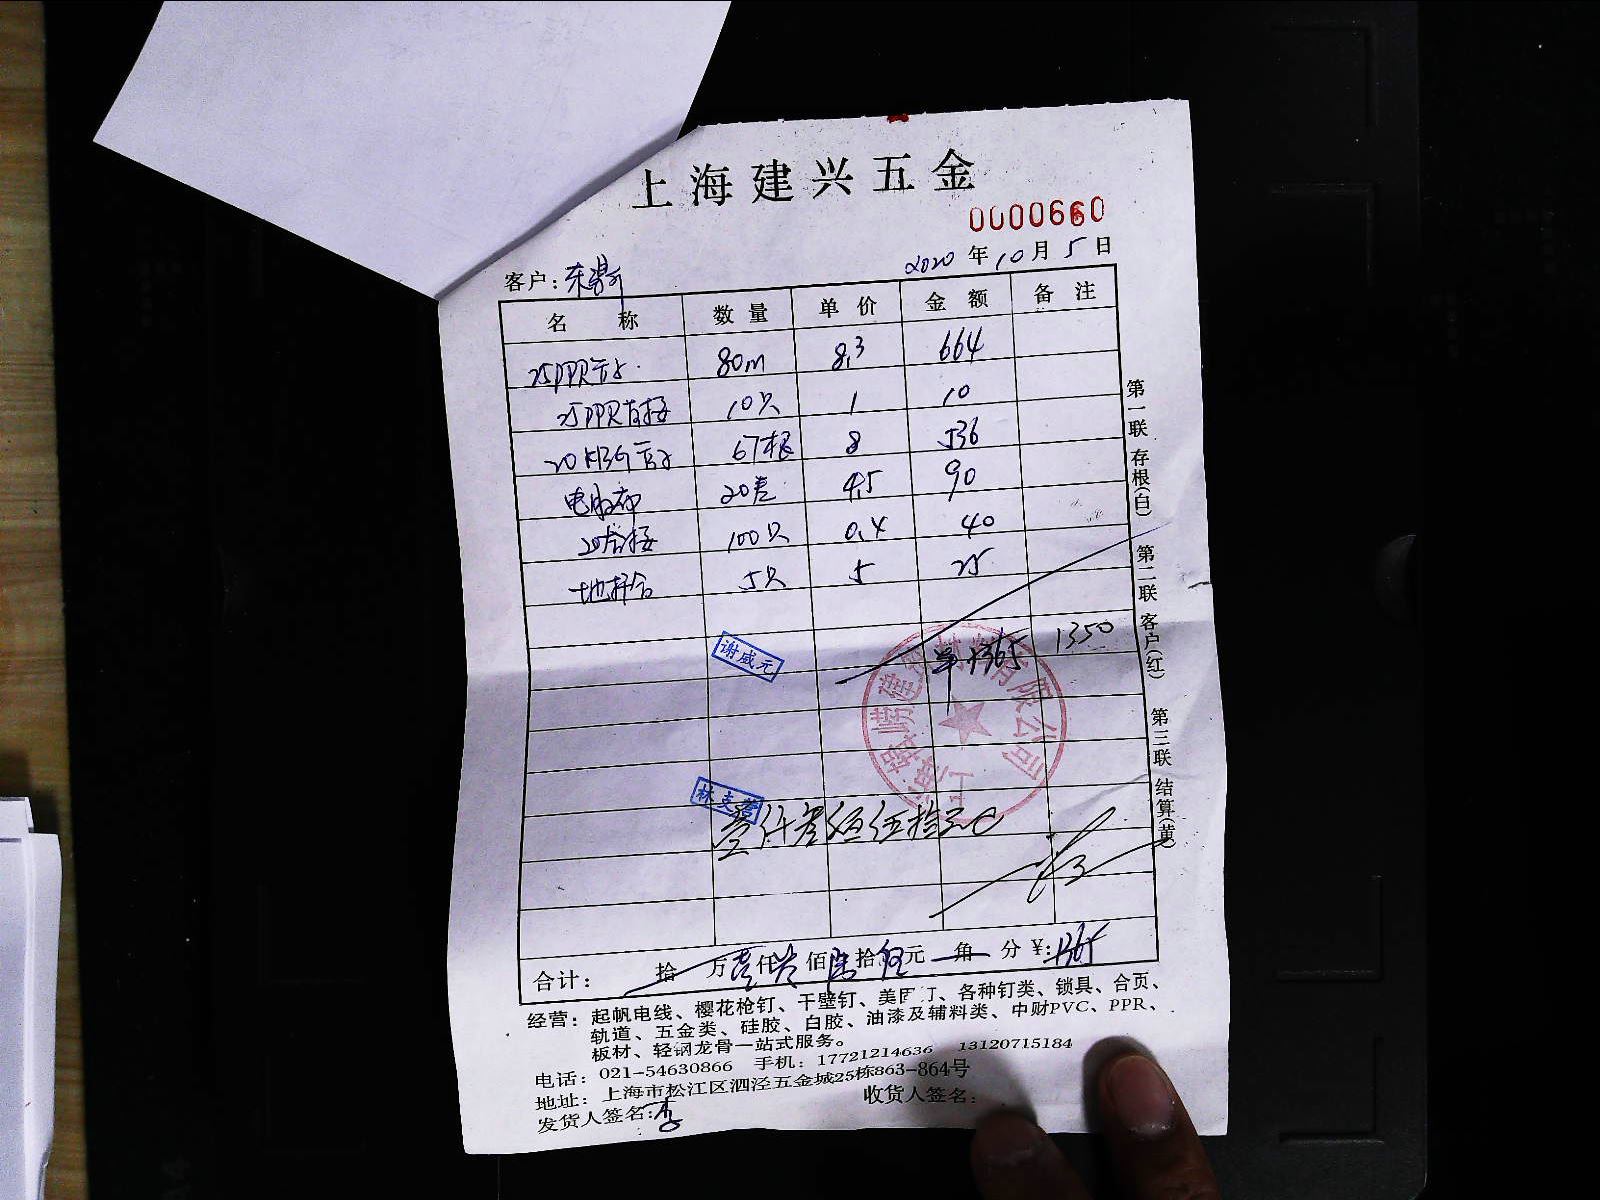 上海建兴五金
0000660
2020年10月5日
客户:
名称 数量 单价 金额 备注
25PPR管子 80m 8.3 664
25PPR直接 10只 1 10
20KBG管子 67根 8 536
20套 4.5 90
20直接 100只 0.4 40
地插合 5只 5 25
谢威元
1365 1350
有限公司
壹仟叁佰伍拾元
合计: 拾 万壹仟叁佰陆拾伍元 角 分 ¥:1365
经营:起帆电线、樱花枪钉、干壁钉、美固钉、各种钉类、锁具、合页、
轨道、五金类、硅胶、白胶、油漆及辅料类、中财PVC、PPR、
板材、轻钢龙骨一站式服务。
电话:021-54630866 手机:17721214636 13120715184
地址:上海市松江区泗泾五金城25栋863-864号
发货人签名:李 收货人签名:
第一联 存根(白) 第二联 客户(红) 第三联 结算(黄)